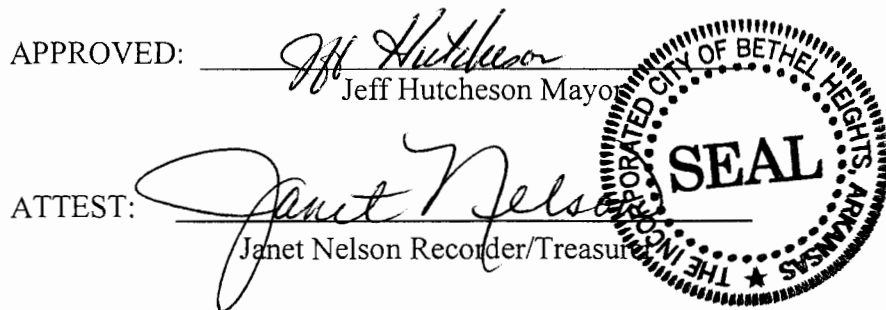 APPROVED: Jeff Hutcheson
Jeff Hutcheson Mayor
ATTEST: Janet Nelson
Janet Nelson Recorder/Treasurer
THE INCORPORATED CITY OF BETHEL HEIGHTS, ARKANSAS
SEAL